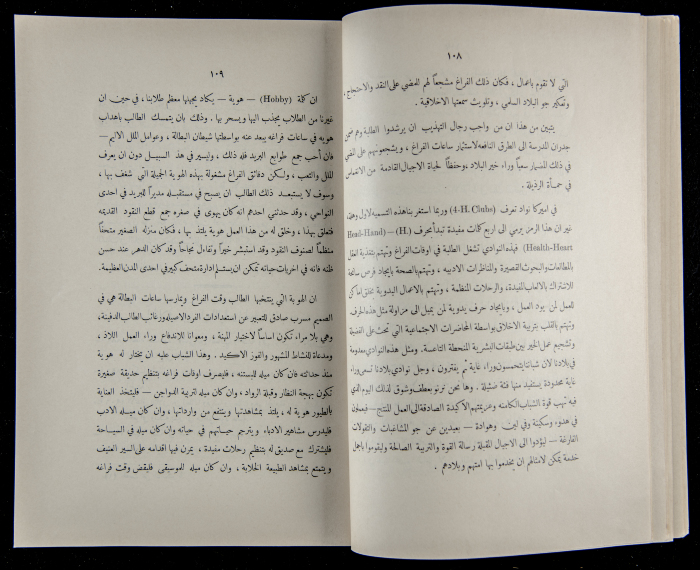 ١٠٨
التي لا تقوم باعمال ، فكان ذلك الفراغ مشجعاً لهم للمضي على النقد والاحتجاج ،
وتعكير جو البلاد السلمي ، وتلويث سمعتها الاخلاقية .
يتبين من هذا ان من واجب رجال التهذيب ان يرشدوا الطلبة وهم ضمن
جدران المدرسة الى الطرق النافعة لاستثمار ساعات الفراغ ، ويشجعوهم على المضي
في ذلك المضمار سعياً وراء خير البلاد ، وحفظاً لحياة الاجيال القادمة من الانغماس
في حمأة الرذيلة .
في اميركا نواد تعرف (4-H. Clubs) وربما استغر بنا هذه التسمية لاول وهلة،
غير ان هذا الرمز يرمي الى اربع كلمات مفيدة تبدأ بحرف (H.) — (Head-Hand
Health-Heart) فهذه النوادي تشغل الطلبة في اوقات الفراغ وتهتم بتغذية العقل
بالمطالعات والبحوث القصيرة والمناظرات الادبية ، وتهتم بالصحة بايجاد فرص سانحة
للاشتراك بالالعاب المفيدة، والرحلات المنظمة ، وتهتم بالاعمال اليدوية بخلق اماكن
للعمل لمن يود العمل ، وبايجاد حرف يدوية لمن يميل الى مزاولة مثل هذه الحرف
وتهتم بالقلب بتربية الاخلاق بواسطة المحاضرات الاجتماعية التي تحث على الفضيلة
وتشجيع عمل الخير بين طبقات البشرية المنحطة التاعسة. ومثل هذه النوادي معدومة
في بلادنا لان شباننا يتحمسون وراء غاية ثم يفترون ، وجل نوادي بلادنا تسعى وراء
غاية محدودة يستفيد منها فئة ضئيلة . وها نحن نرنو بعطف وشوق لذلك اليوم الذي
فيه تهب قوة الشباب الكامنة وعزيمتهم الاكيدة الصادقة الى العمل المنتج — فيعملون
في هدوء وسكينة وفي لين وهوادة — بعيدين عن جو المشاغبات والتقولات
الفارغة — ليؤدوا الى الاجيال المقبلة رسالة القوة والتربية الصالحة وليقوموا باجل
خدمة يمكن لامثالهم ان يخدموا بها امتهم وبلادهم .
١٠٩
ان كلمة (Hobby) — هوية — يكاد يجهلها معظم طلابنا ، في حين ان
غيرنا من الطلاب ينجذب اليها ويسحر بها . وذلك بان يتمسك الطالب باهداب
هوية في ساعات فراغه يبعد عنه بواسطتها شيطان البطالة ، وعوامل الملل الاثيم—
فان أحب جمع طوابع البريد فله ذلك ، وليسير في هذ السبيل دون ان يعرف
الملل والتعب ، ولتكن دقائق الفراغ مشغولة بهذه الهوية الجميلة التي شغف بها ،
وسوف لا يستبعد ذلك الطالب ان يصبح في مستقبله مديراً للبريد في احدى
النواحي ، وقد حدثني احدهم انه كان يهوى في صغره جمع قطع النقود القديمة
فتعلق بهذا ، وخلق له من هذا العمل هوية يلتذ بها ، فكان منزله الصغير متحفاً
منظماً لصنوف النقود وقد استبشر خيراً وتفاءل نجاحاً وقد كان الدهر عند حسن
ظنه فانه في اخريات حياته تمكن ان يستلم ادارة متحف كبير في احدى المدن العظيمة.
ان الهوية التي ينتخبها الطالب وقت الفراغ ويمارسها ساعات البطالة هي في
الصميم مسرب صادق للتعبير عن استعدادات الفرد الاصيله ورغائب الطالب الدفينة،
وهي بلا مراء تكون اساساً لاختيار المهنة ، ومعوانا للاندفاع وراء العمل اللاذ ،
ومدعاة للنشاط المشهور والفوز الاكيد . وهذا الشباب عليه ان يختار له هوية
منذ حداثته فان كان ميله للبستنه ، فليصرف اوقات فراغه بتنظيم حديقة صغيرة
تكون بهجة النظار وقبلة الرواد ، وان كان ميله لتربية الدواجن — فليتخذ العناية
بالطيور هوية له ، يلتذ بمشاهدتها وينتفع من وارداتها ، وان كان ميله الادب
فليدرس مشاهير الادباء ويترجم حياتهم في حياته وان كان ميله في السياحة
فليشترك مع صديق له بتنظيم رحلات مفيدة ، يمرن فيها اقدامه على السير العنيف
ويتمتع بمشاهد الطبيعة الخلابة ، وان كان ميله للموسيقى فليقض وقت فراغه